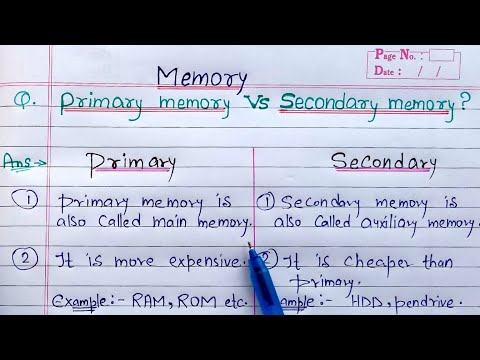 Page No. :
Date : / /
Memory
Q. Primary memory Vs Secondary memory?
Ans→ Primary
① Primary memory is
also called main memory.
② It is more expensive.
Example:- RAM, ROM etc.
Secondary
① Secondary memory is
also called auxiliary memory.
② It is cheaper than
primary.
ample:- HDD, pendrive.